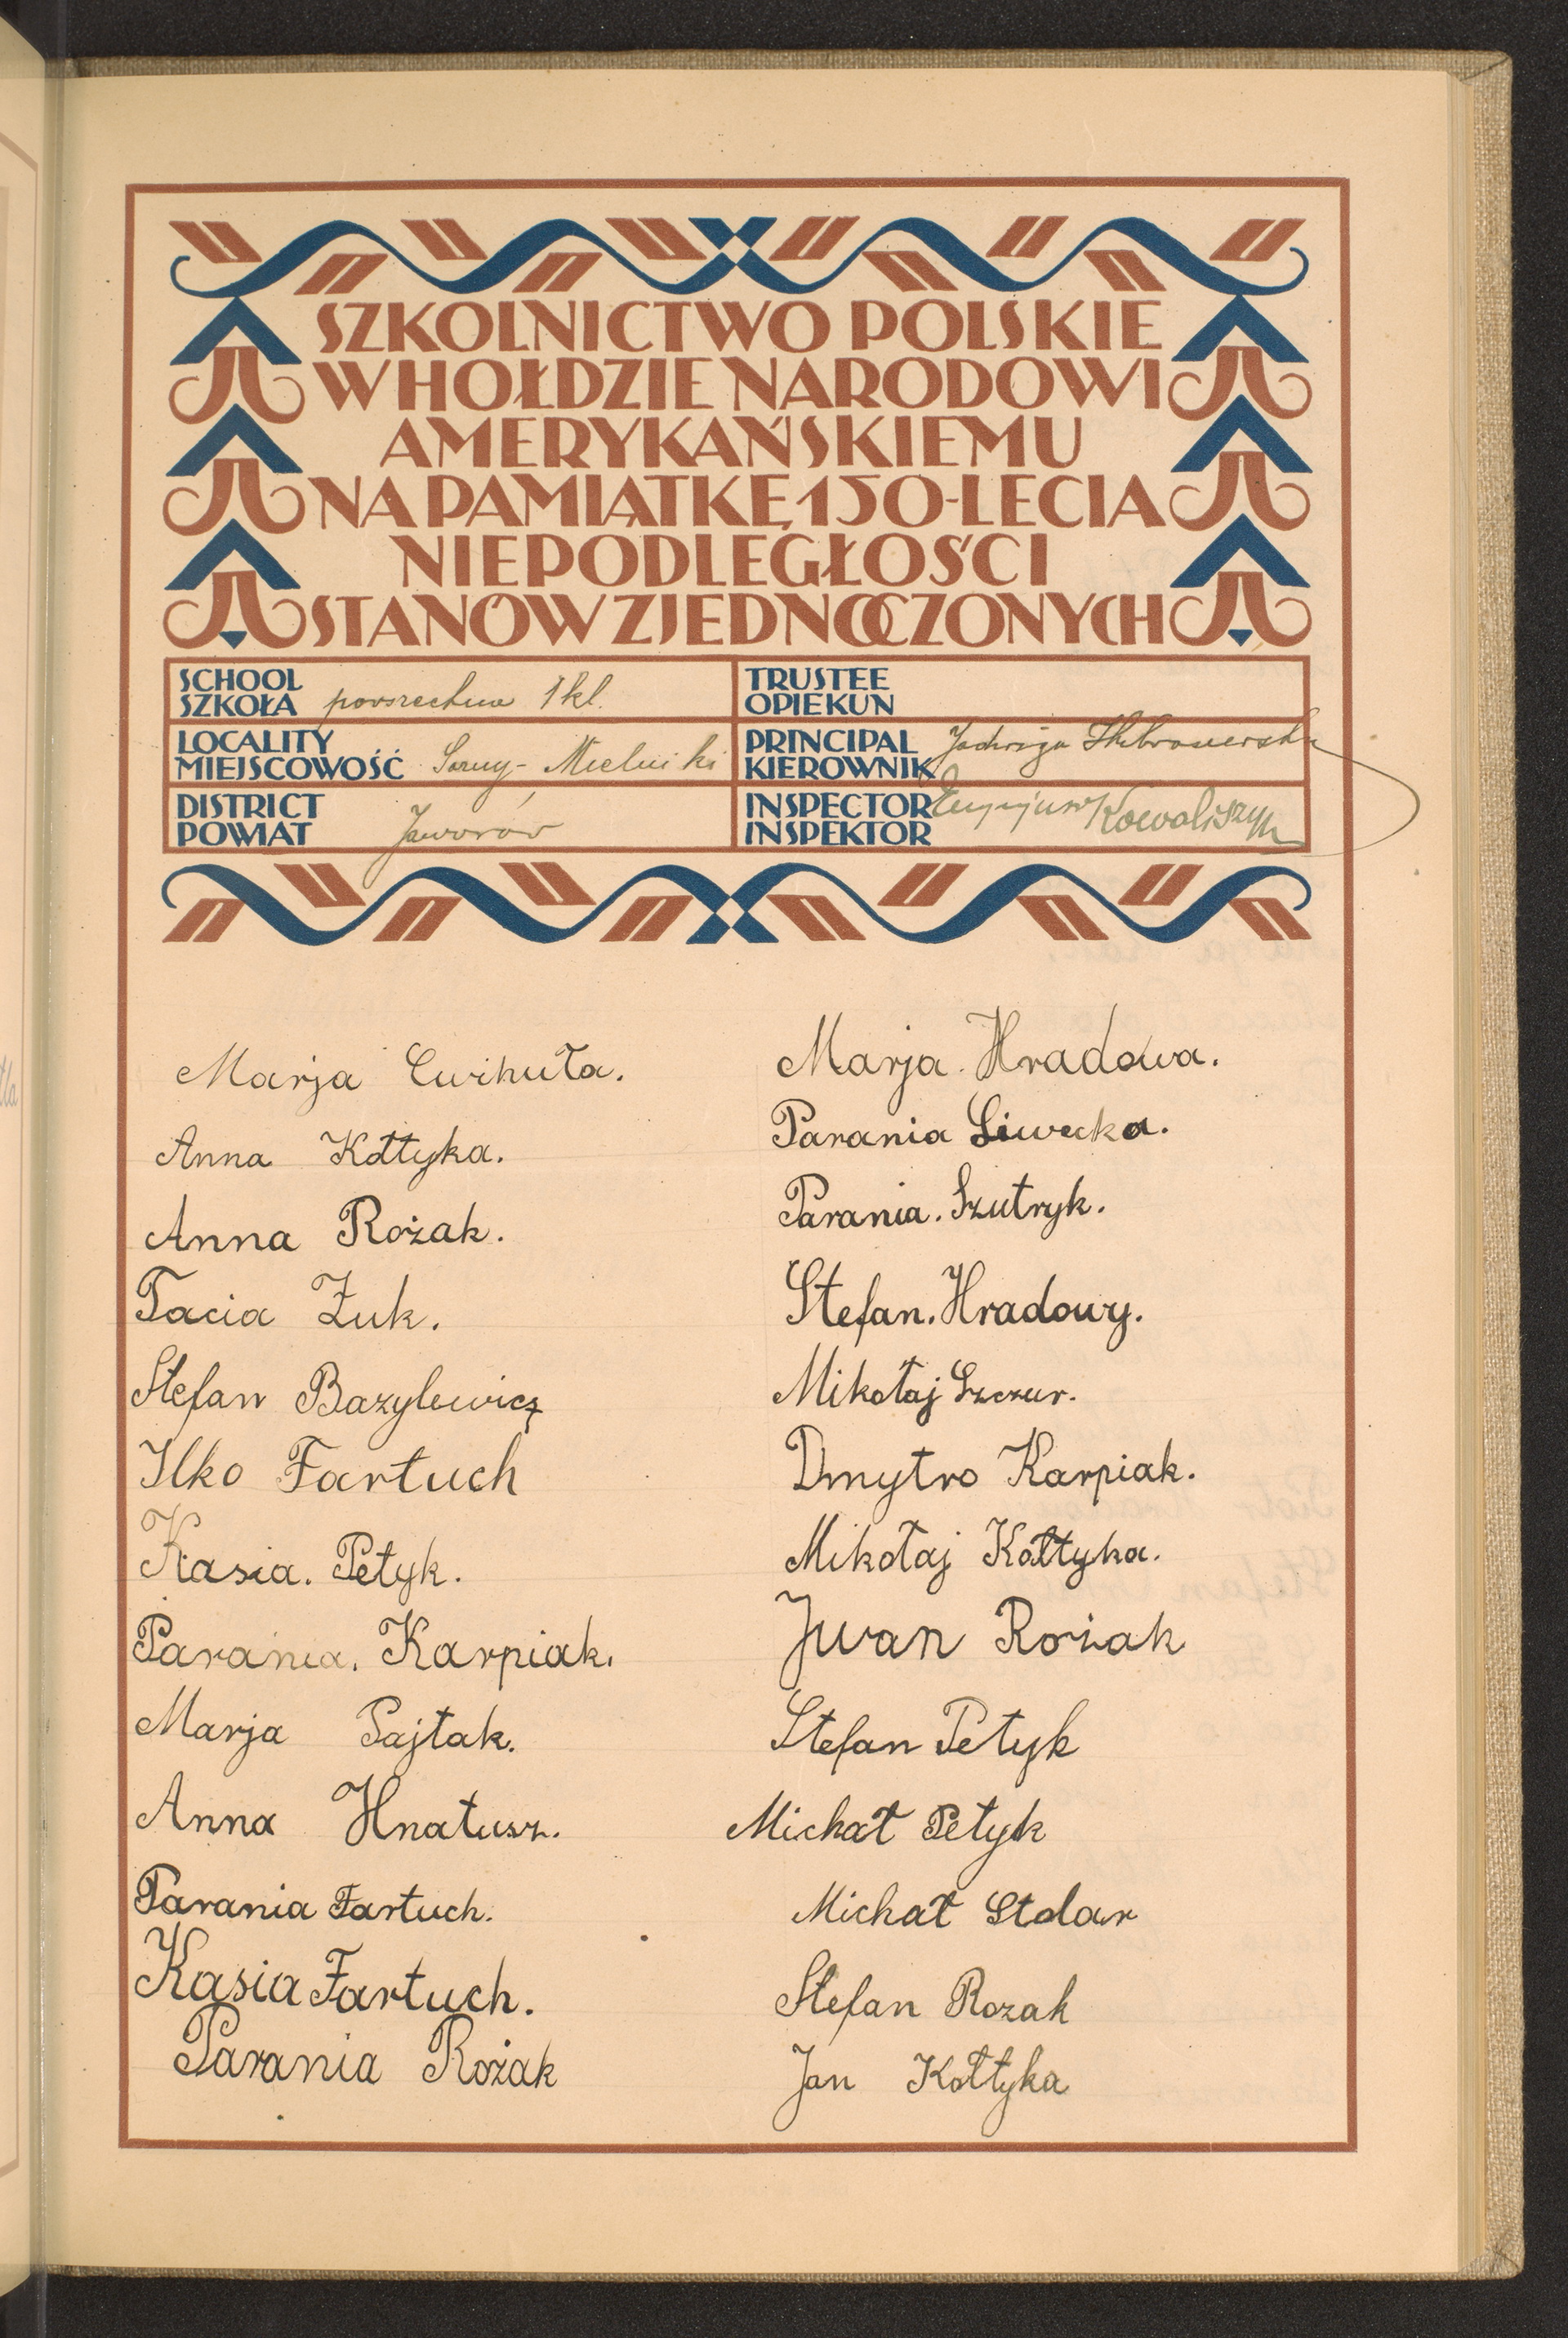 SZKOLNICTWO POLSKIE
W HOŁDZIE NARODOWI
AMERYKAŃSKIEMU
NA PAMIĄTKĘ 150-LECIA
NIEPODLEGŁOŚCI
STANÓW ZJEDNOCZONYCH
SCHOOL
SZKOŁA powszechna 1 kl.
TRUSTEE
OPIEKUN
LOCALITY
MIEJSCOWOŚĆ Sarny - Mielniki
PRINCIPAL
KIEROWNIK Jadwiga
DISTRICT
POWIAT Jaworów
INSPECTOR
INSPEKTOR Kowaliszyn
Marja Cwihuła.
Anna Kołtyka.
Anna Rożak.
Tacia Żuk.
Stefan Bazylewicz
Ilko Fartuch
Kasia. Petyk.
Parania. Karpiak.
Marja Pajtak.
Anna Hnatusz.
Parania Fartuch.
Kasia Fartuch.
Parania Rożak
Marja. Hradowa.
Parania Siwecka.
Parania. Szutryk.
Stefan. Hradowy.
Mikołaj Szczur.
Dmytro Karpiak.
Mikołaj Kołtyka.
Iwan Rożak
Stefan Petyk
Michał Petyk
Michał Stolar
Stefan Rozak
Jan Kołtyka